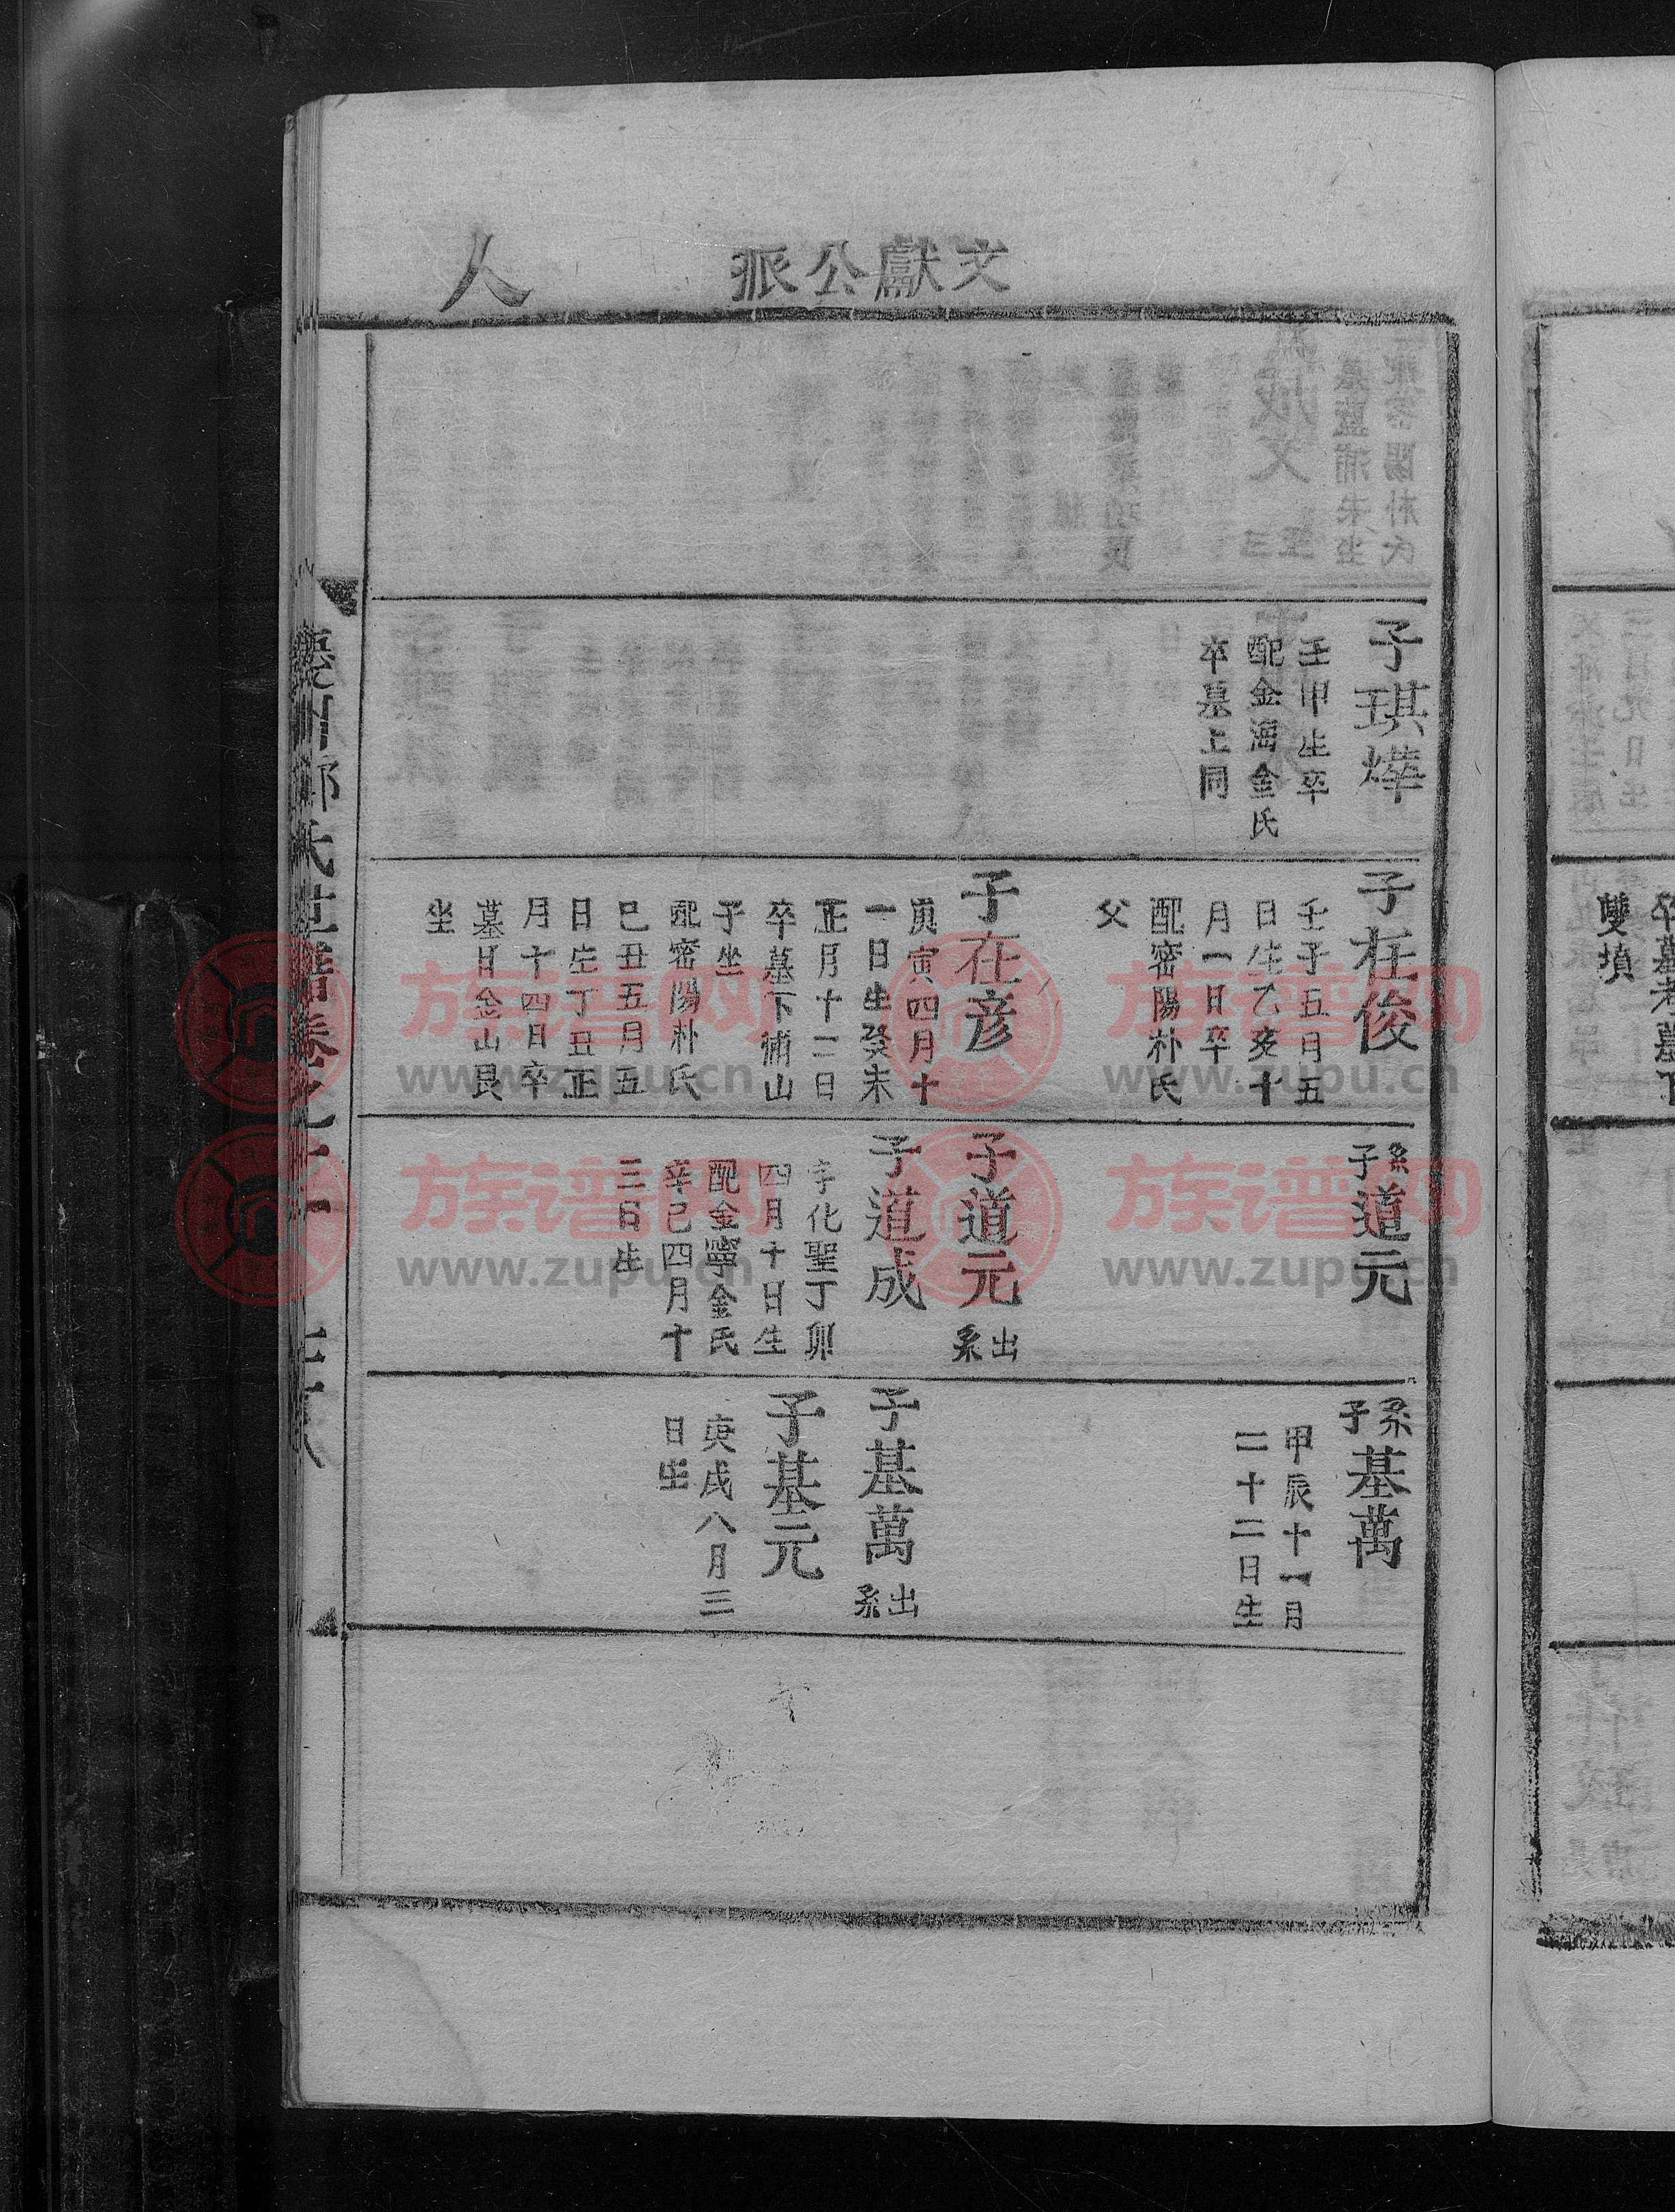 文獻公派
人
子琪燁
壬甲生卒
配金海金氏
卒墓上同
子在俊
壬子五月五
日生乙亥十
月一日卒
配密陽朴氏
父
子在彦
庚寅四月十
一日生癸未
正月十二日
卒墓下浦山
子坐
配密陽朴氏
己丑五月五
日生丁丑正
月十四日卒
墓月金山艮
坐
系子道元
子道元 出系
子道成
字化聖丁卯
四月十日生
配金寧金氏
辛巳四月十
三日生
系子基萬
甲辰十一月
二十二日生
子基萬 出系
子基元
庚戌八月三
日生
慶州鄭氏世譜卷之二十
雙墳
族谱网
www.zupu.cn
族谱网
www.zupu.cn
族谱网
www.zupu.cn
族谱网
www.zupu.cn